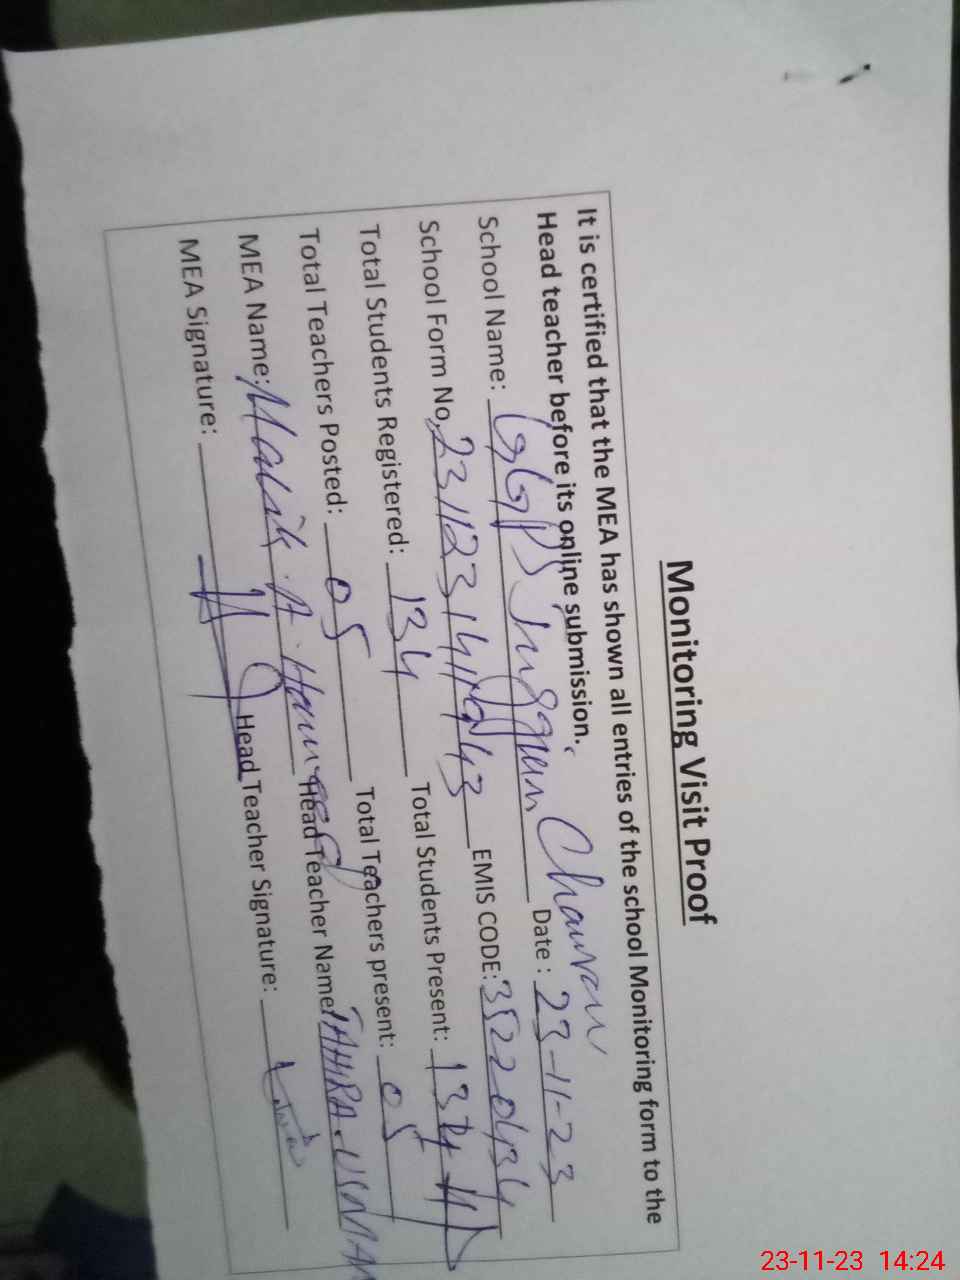 Monitoring Visit Proof
It is certified that the MEA has shown all entries of the school Monitoring form to the
Head teacher before its online submission.
School Name: GGPS Chauran Date : 23-11-23
School Form No, EMIS CODE: 35220434
Total Students Registered: 134 Total Students Present: 134
Total Teachers Posted: 05 Total Teachers present: 05
MEA Name: Malik A. Hameed Head Teacher Name: TAHIRA. USMAN
MEA Signature: Head Teacher Signature:
23-11-23 14:24